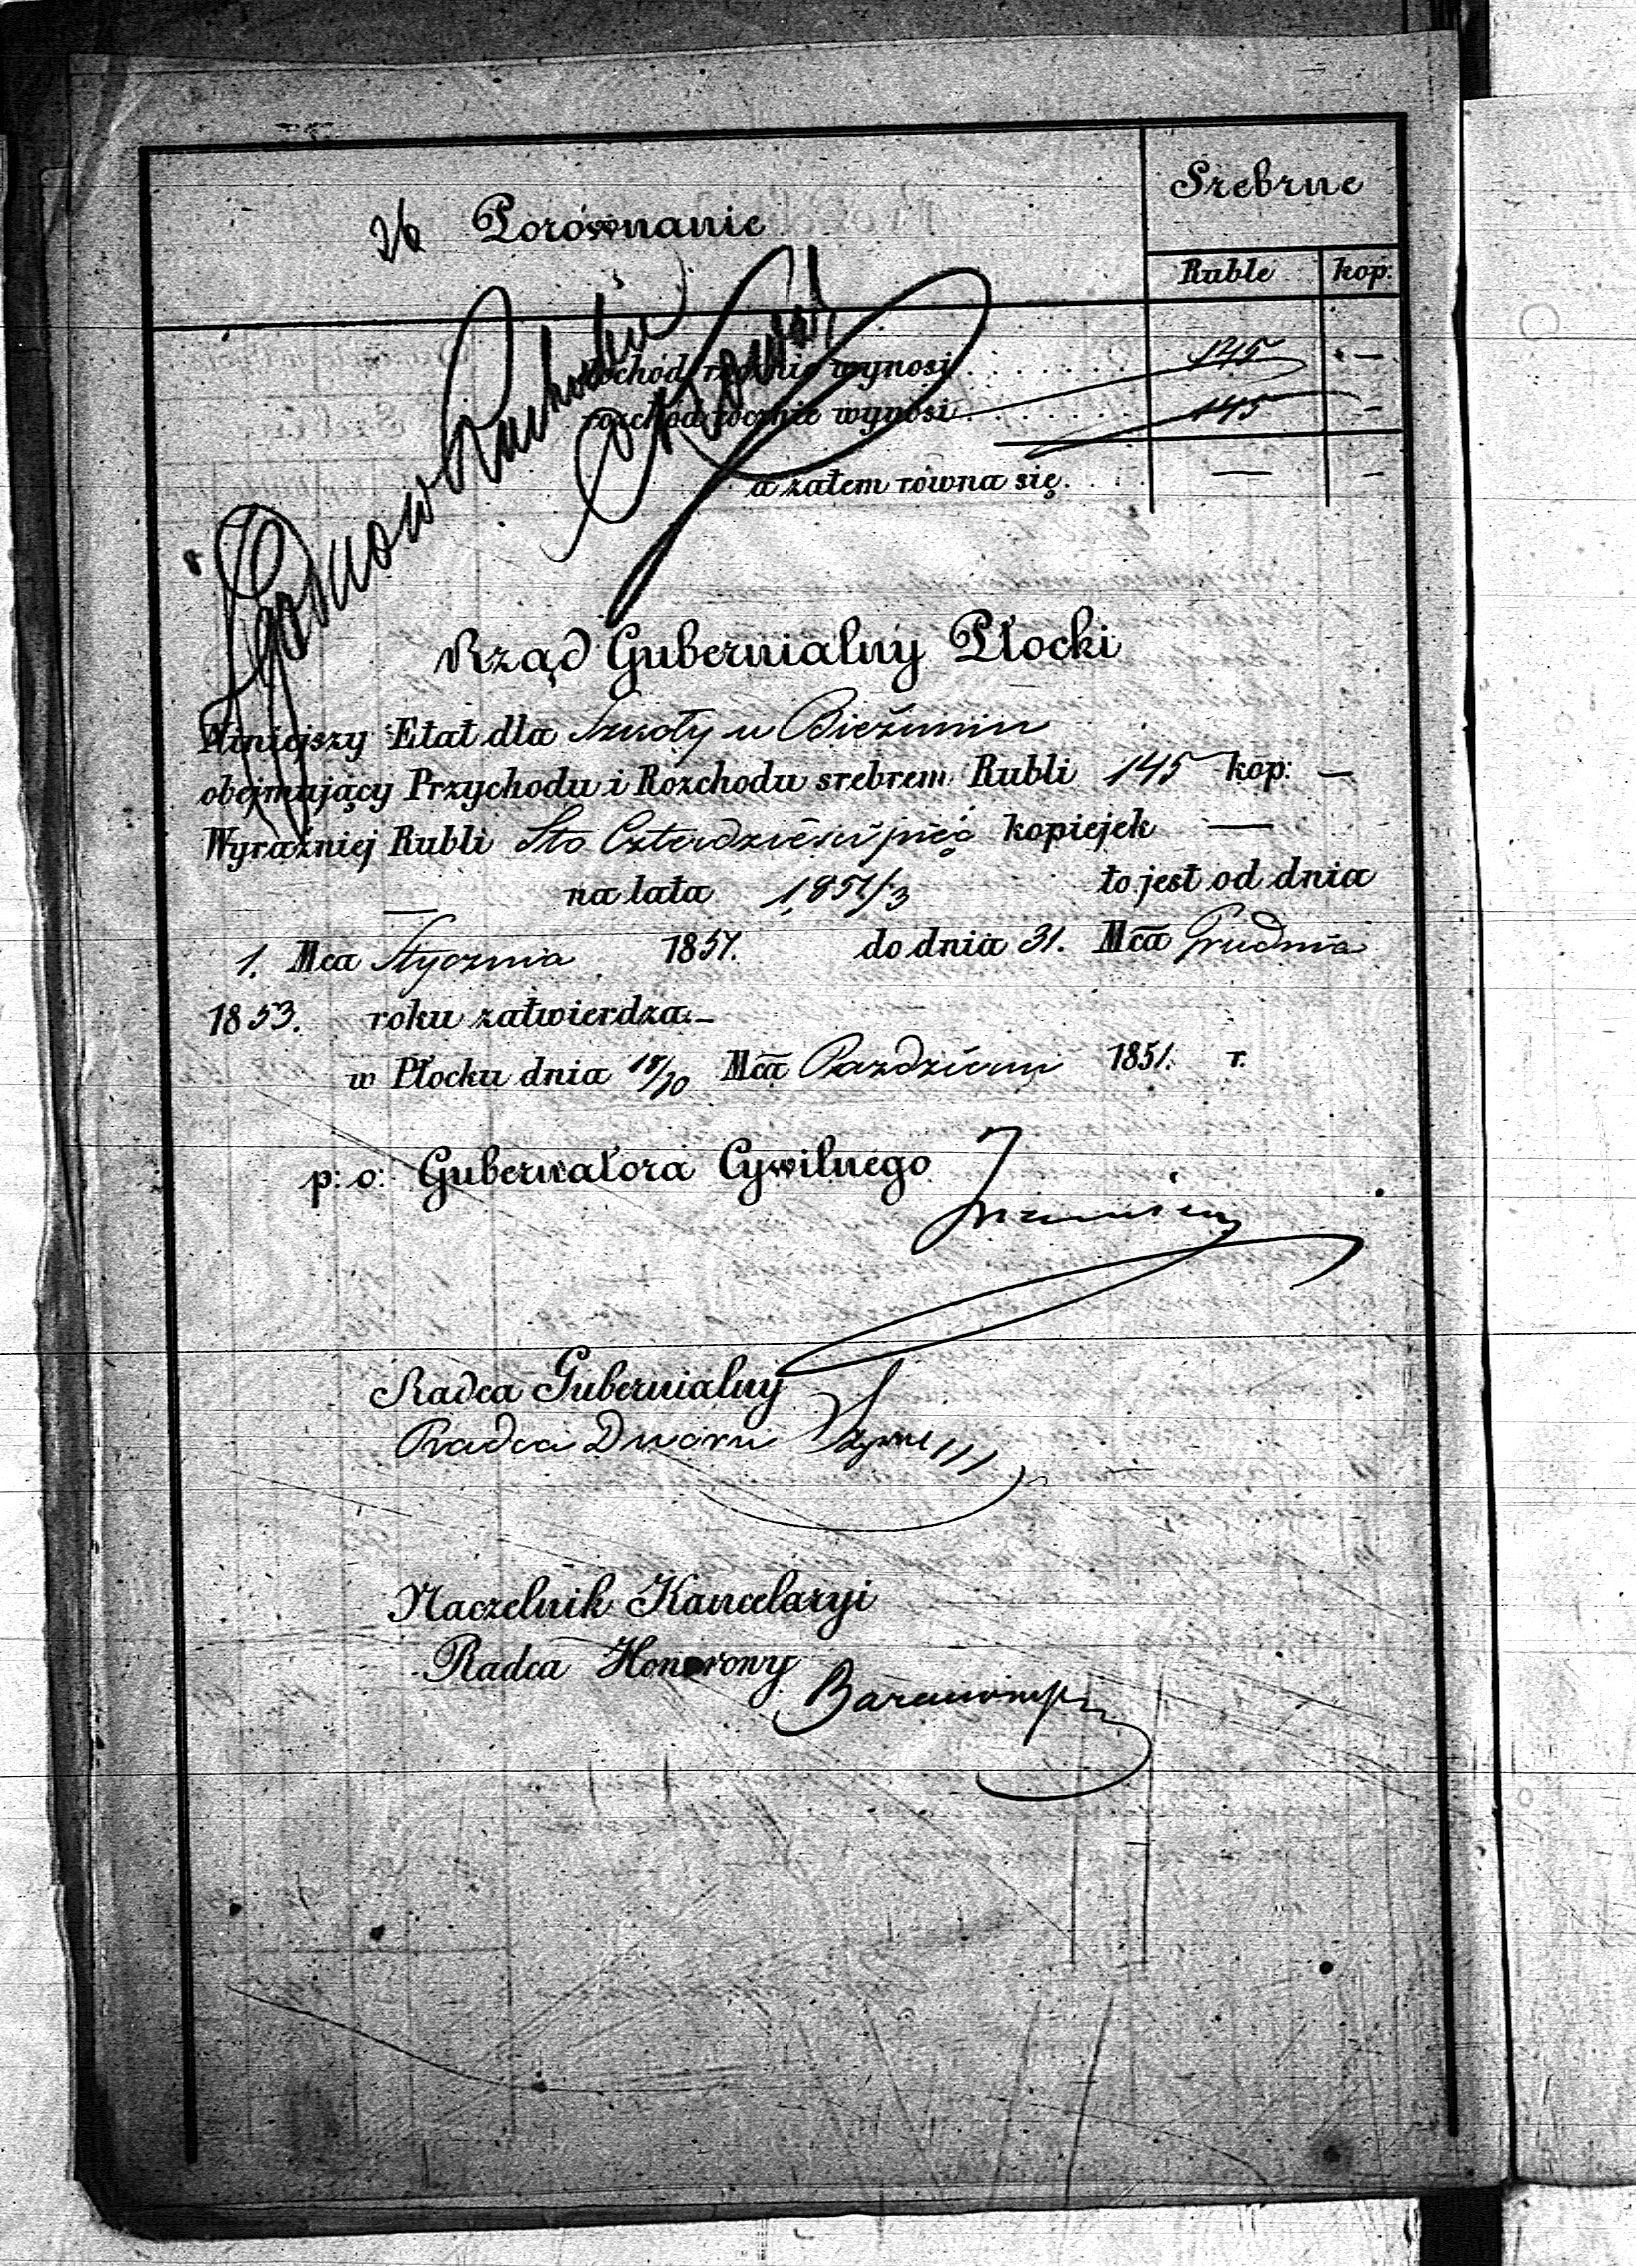 Srebrne
26 Porównanie
Ruble kop:
Dochód rocznie wynosi 145 —
rozchód rocznie wynosi 145 —
a zatem równa się. — —
Rząd Gubernialny Płocki
Niniejszy Etat dla Szkoły w Bieżuniu
obejmujący Przychodu i Rozchodu srebrem Rubli 145 kop: —
Wyraźniej Rubli Sto Czterdzieści pięć kopiejek —
— na lata 1851/3 to jest od dnia
1. Mca Stycznia 1851. do dnia 31. Mca Grudnia
1853. roku zatwierdza.—
w Płocku dnia 18/30 Mca Październ 1851. r.
p: o: Gubernatora Cywilnego
Radca Gubernialny
Radca Dworu
Naczelnik Kancelaryi
Radca Honorowy